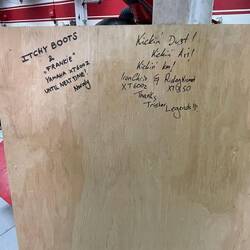 ITCHY BOOTS
&
"FRANKIE"
YAMAHA XT600Z
UNTIL NEXT TIME!
Noraly
Kickin' Dust!
Kickin' Ass!
Kickin' km!
IronChris & RidingNomad
XT600Z XT660
Thanks
Tristar
Legends!!!